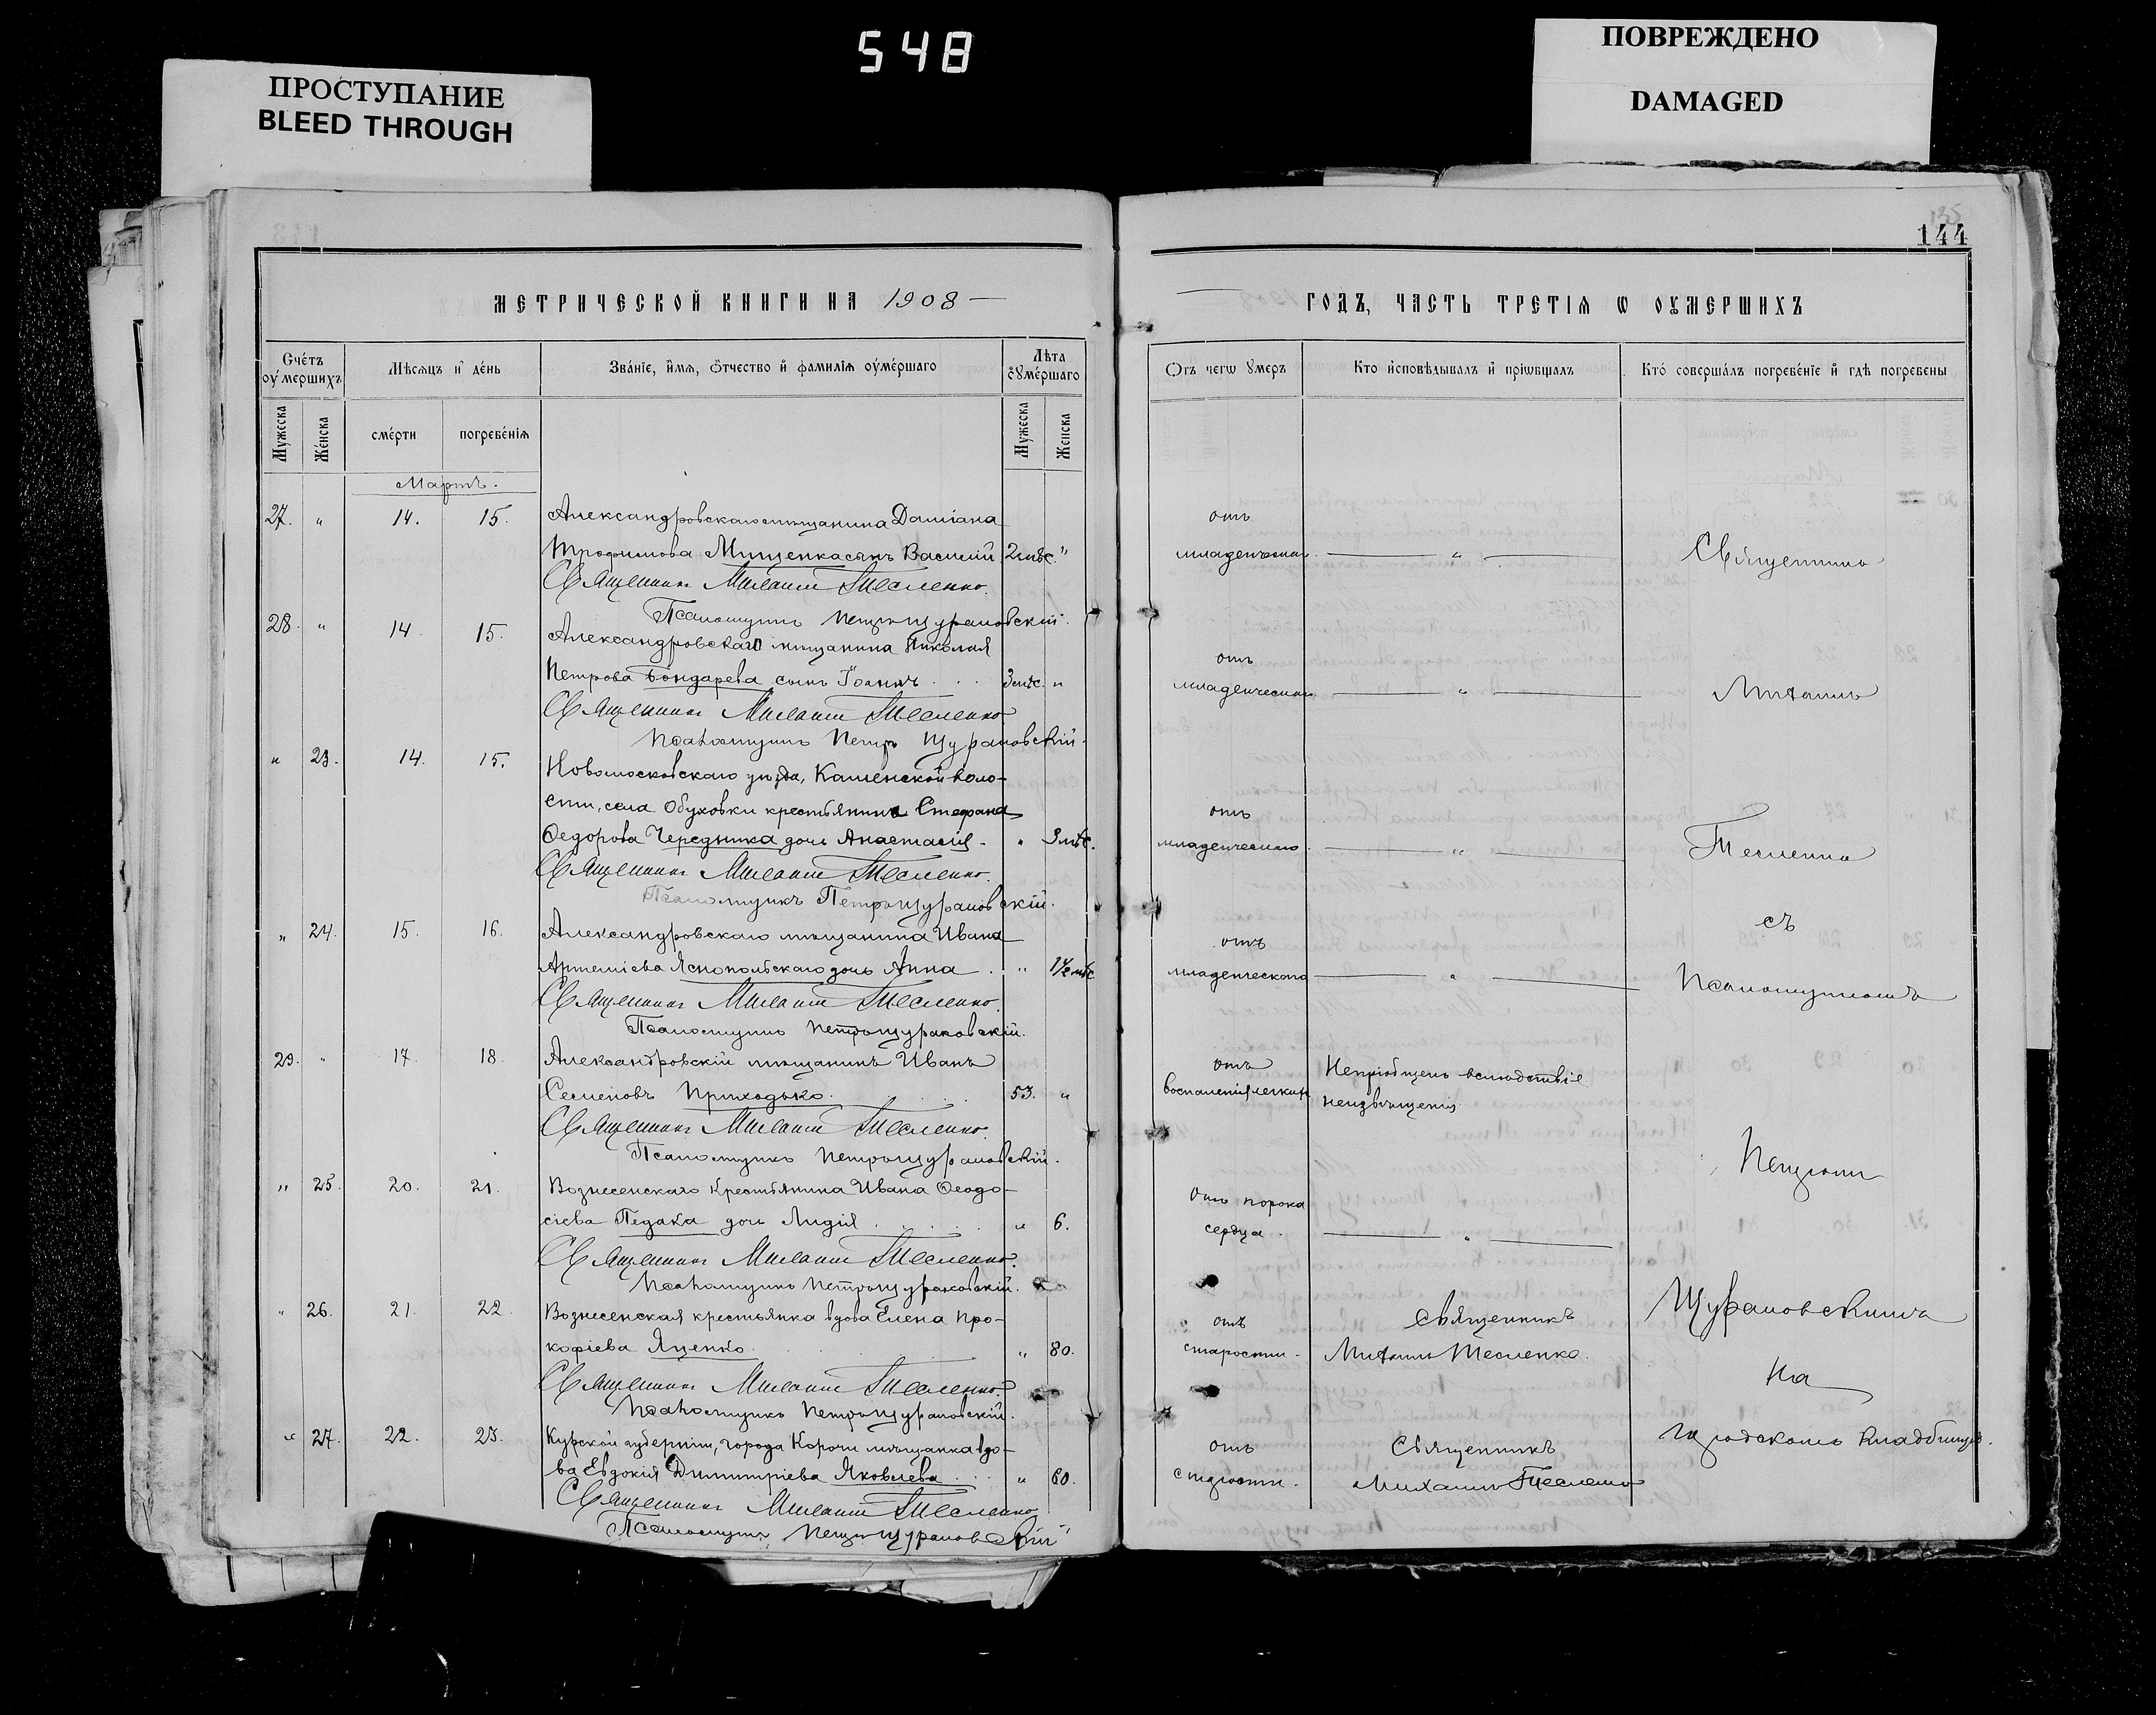 548
ПРОСТУПАНИЕ
BLEED THROUGH
ПОВРЕЖДЕНО
DAMAGED
135
144
МЕТРИЧЕСКОЙ КНИГИ НА 1908
Счётъ оумершихъ
Мѣсяцъ и день
Званіе, имя, отчество и фамилія оумершаго
Лѣта оумершаго
Мужеска
Женска
смерти
погребенія
Мужеска
Женска
Мартъ.
27. " 14. 15. Александровскаго мѣщанина Даміана
Трофимова Мищенка сынъ Василій 2 мѣс. "
Священникъ Михаилъ Тесленко.
Псаломщикъ Петръ Щурановскій.
28. " 14. 15. Александровскаго мѣщанина Николая
Петрова Бондарева сынъ Іоаннъ 3 мѣс. "
Священникъ Михаилъ Тесленко.
Псаломщикъ Петръ Щурановскій.
" 23. 14. 15. Новомосковскаго уѣзда, Каменской воло-
сти, села Обуховки крестьянина Стефана
Ѳедорова Чередника дочь Анастасія " 3 мѣс.
Священникъ Михаилъ Тесленко.
Псаломщикъ Петръ Щурановскій.
" 24. 15. 16. Александровскаго мѣщанина Ивана
Артеміева Яснопольскаго дочь Анна " 1½ мѣс
Священникъ Михаилъ Тесленко.
Псаломщикъ Петръ Щурановскій.
29. " 17. 18. Александровскій мѣщанинъ Иванъ
Семеновъ Приходько. 53. "
Священникъ Михаилъ Тесленко.
Псаломщикъ Петръ Щурановскій.
" 25. 20. 21. Вознесенскаго крестьянина Ивана Ѳеодо-
сіева Педака дочь Лидія " 6.
Священникъ Михаилъ Тесленко.
Псаломщикъ Петръ Щурановскій.
" 26. 21. 22. Вознесенская крестьянка вдова Елена Про-
кофіева Яценко. " 80.
Священникъ Михаилъ Тесленко.
Псаломщикъ Петръ Щурановскій.
" 27. 22. 23. Курской губерніи, города Корочи мѣщанка вдо-
ва Евдокія Димитріева Яковлева " 60.
Священникъ Михаилъ Тесленко
Псаломщикъ Петръ Щурановскій
ГОДЪ, ЧАСТЬ ТРЕТІЯ Ѡ ОУМЕРШИХЪ
Отъ чегѡ умеръ
Кто исповѣдывалъ и пріѡбщалъ
Кто совершалъ погребеніе и гдѣ погребены
отъ
младенческаго. " Священникъ
отъ
младенческаго " Михаилъ
отъ
младенческаго. " Тесленко
съ
отъ
младенческаго " Псаломщикомъ
отъ
воспаленія легкихъ
Непріобщенъ вслѣдствіе
неизвѣщенія
Петромъ
Отъ порока
сердца. "
Щурановскимъ
отъ
старости.
Священникъ
Михаилъ Тесленко.
на
городскомъ кладбищѣ.
отъ
старости.
Священникъ
Михаилъ Тесленко